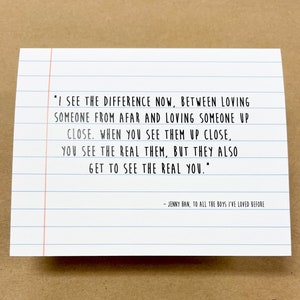 "I SEE THE DIFFERENCE NOW, BETWEEN LOVING
SOMEONE FROM AFAR AND LOVING SOMEONE UP
CLOSE. WHEN YOU SEE THEM UP CLOSE,
YOU SEE THE REAL THEM, BUT THEY ALSO
GET TO SEE THE REAL YOU."
- JENNY HAN, TO ALL THE BOYS I'VE LOVED BEFORE